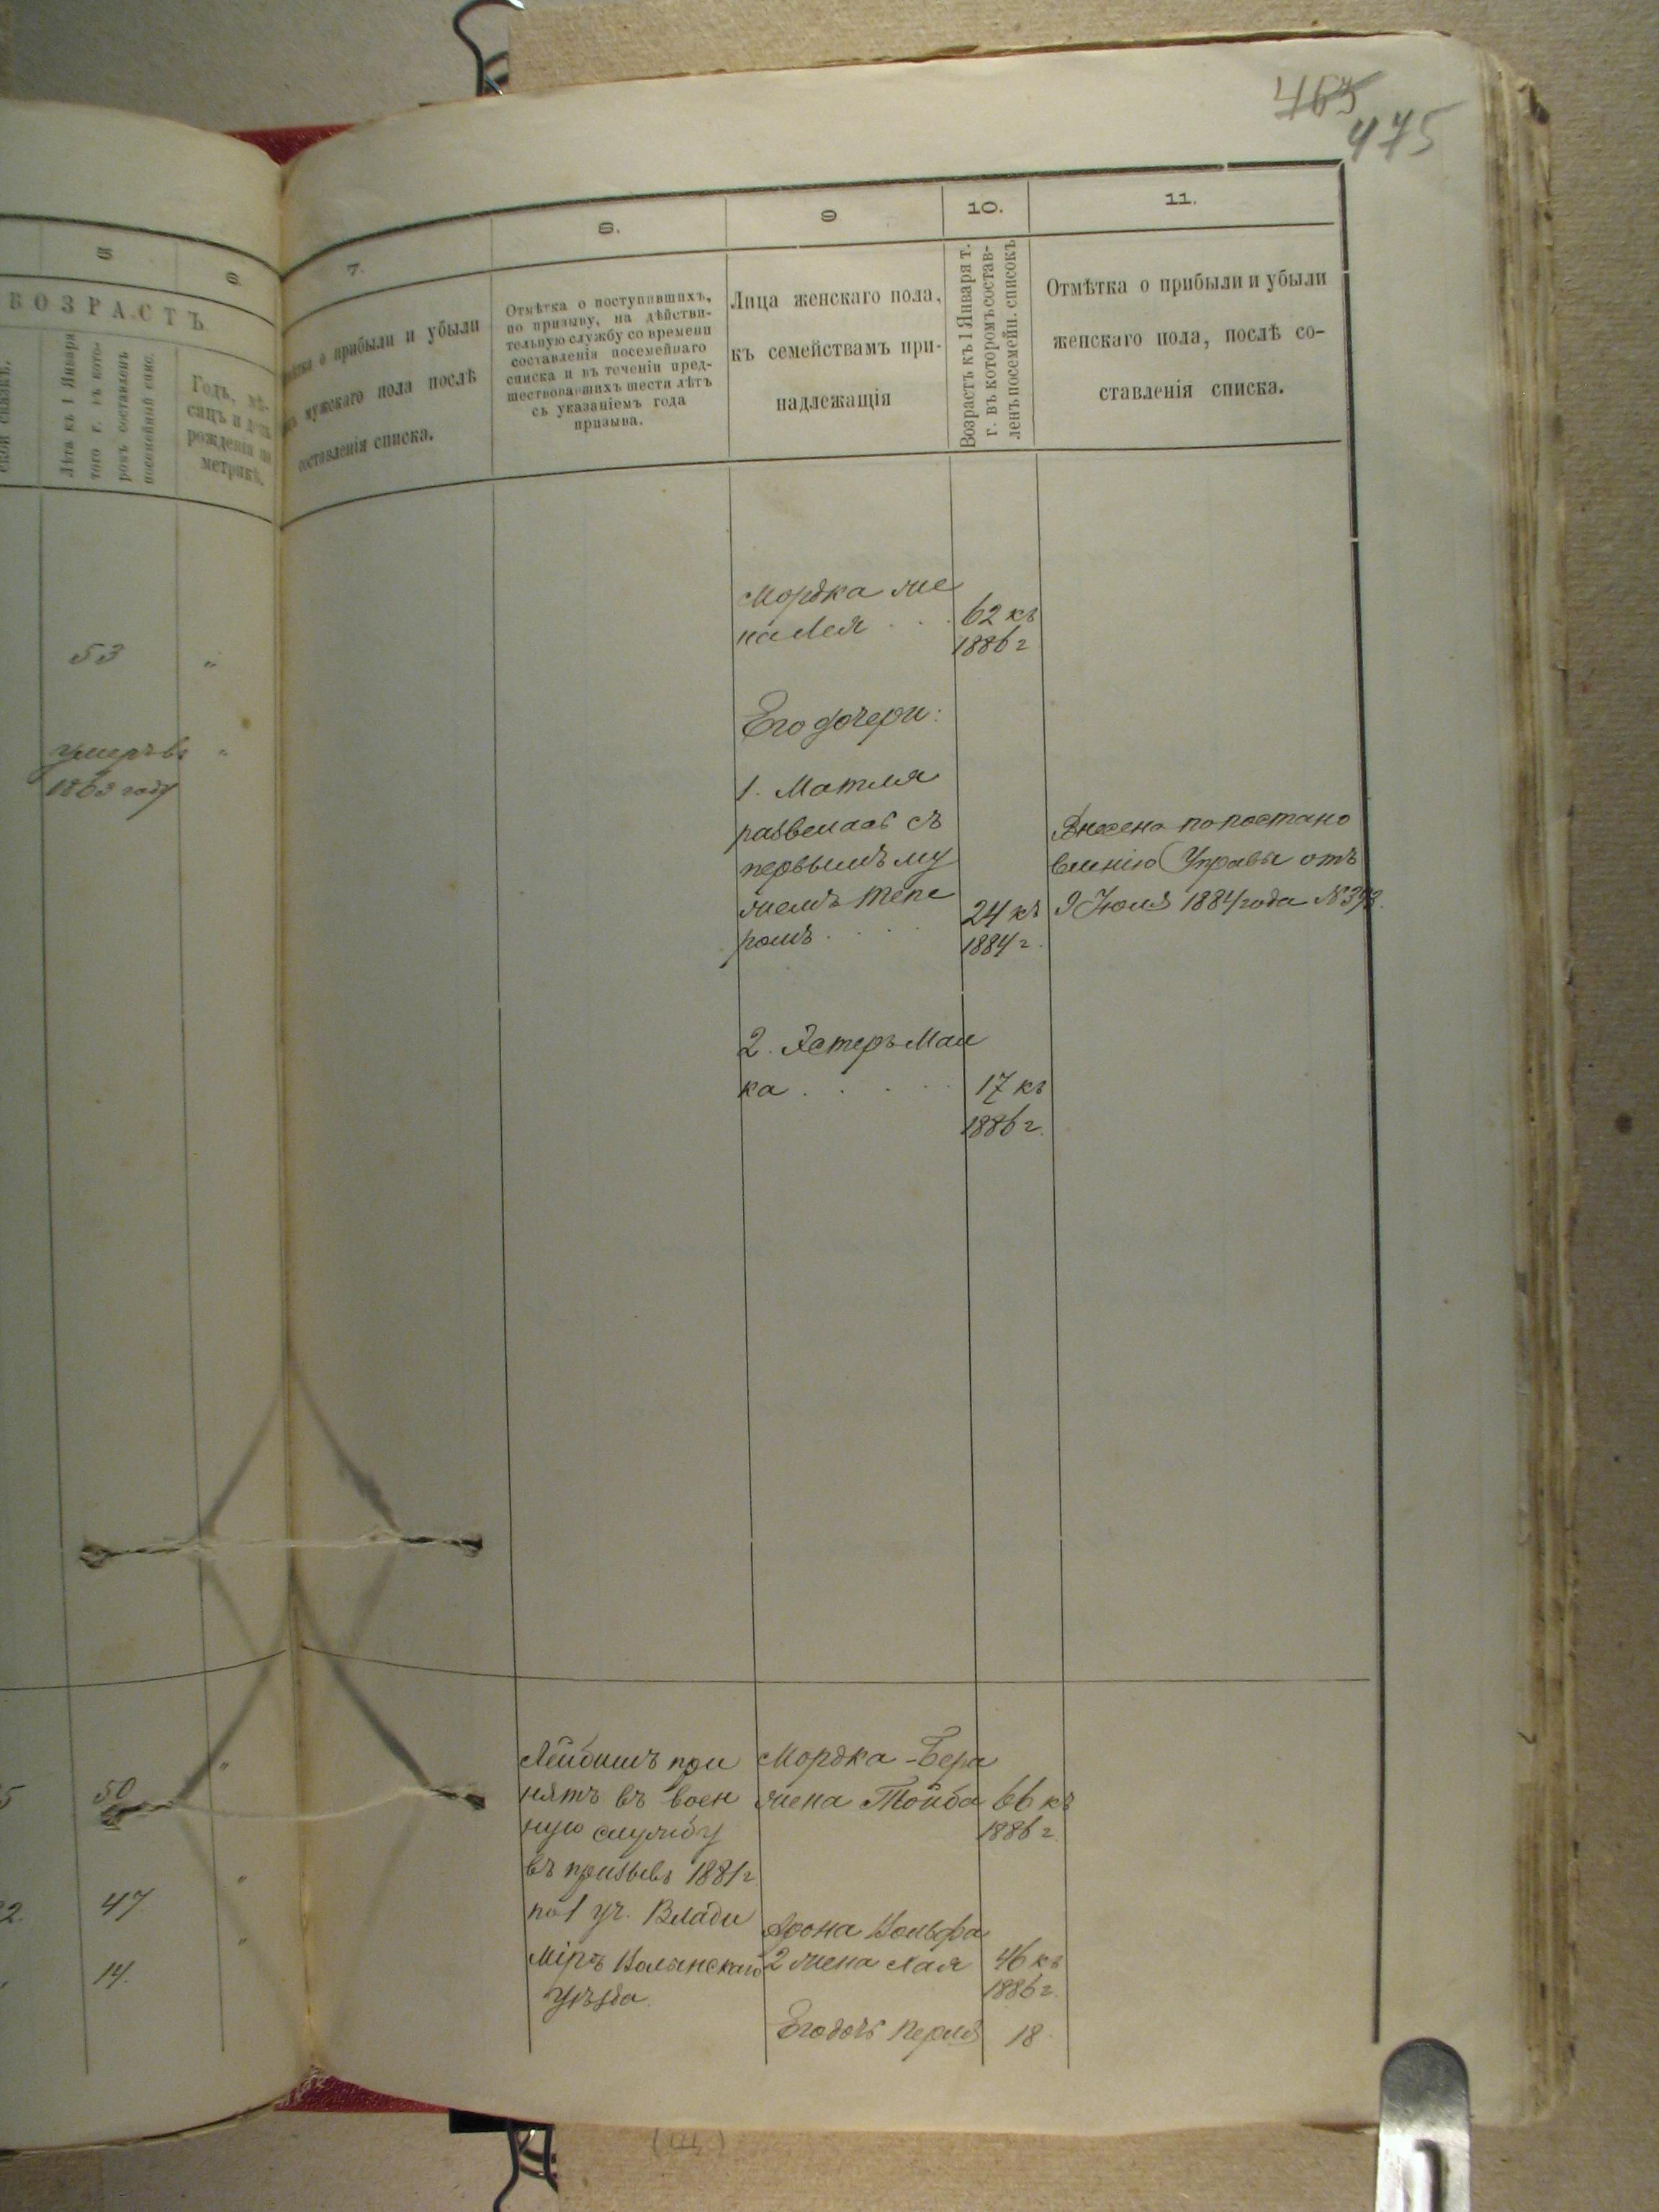 475
5
6.
ВОЗРАСТЪ
Лѣта къ 1 Января
того г. въ кото-
ромъ составленъ
посемейный спис.
Годъ, мѣ-
сяцъ и день
рожденія по
метрикѣ.
53
"
умеръ въ
1863 году
"
50
"
47
"
14.
"
7.
о прибыли и убыли
мужскаго пола послѣ
составленія списка.
8.
Отмѣтка о поступившихъ,
по призыву, на дѣйстви-
тельную службу со времени
составленія посемейнаго
списка и въ теченіи пред-
шествовавшихъ шести лѣтъ
съ указаніемъ года
призыва.
9
Лица женскаго пола,
къ семействамъ при-
надлежащія
10.
Возрастъ къ 1 Января т.
г. въ которомъ состав-
ленъ посемейн. списокъ
11.
Отмѣтка о прибыли и убыли
женскаго пола, послѣ со-
ставленія списка.
Мордка же
на Лея . . . 62 къ
1886 г
Его дочери:
1. Матля
развелась съ
первымъ му
жемъ Тепе
ромъ . . . . 24 къ
1884 г.
Внесена по постано
вленію Управы отъ
9 Іюля 1884 года №
2. Эстеръ Мал
ка . . . . . 17 къ
1886 г.
Лейбишъ при
нятъ въ воен
ную службу
въ призывъ 1881 г.
по 1 уч. Влади
міръ Волынскаго
уѣзда.
Мордка-Бера
жена Тойба 66 къ
1886 г.
Арона Вольфа
2 жена Хая 46 къ
1886 г.
Его дочь Перля 18